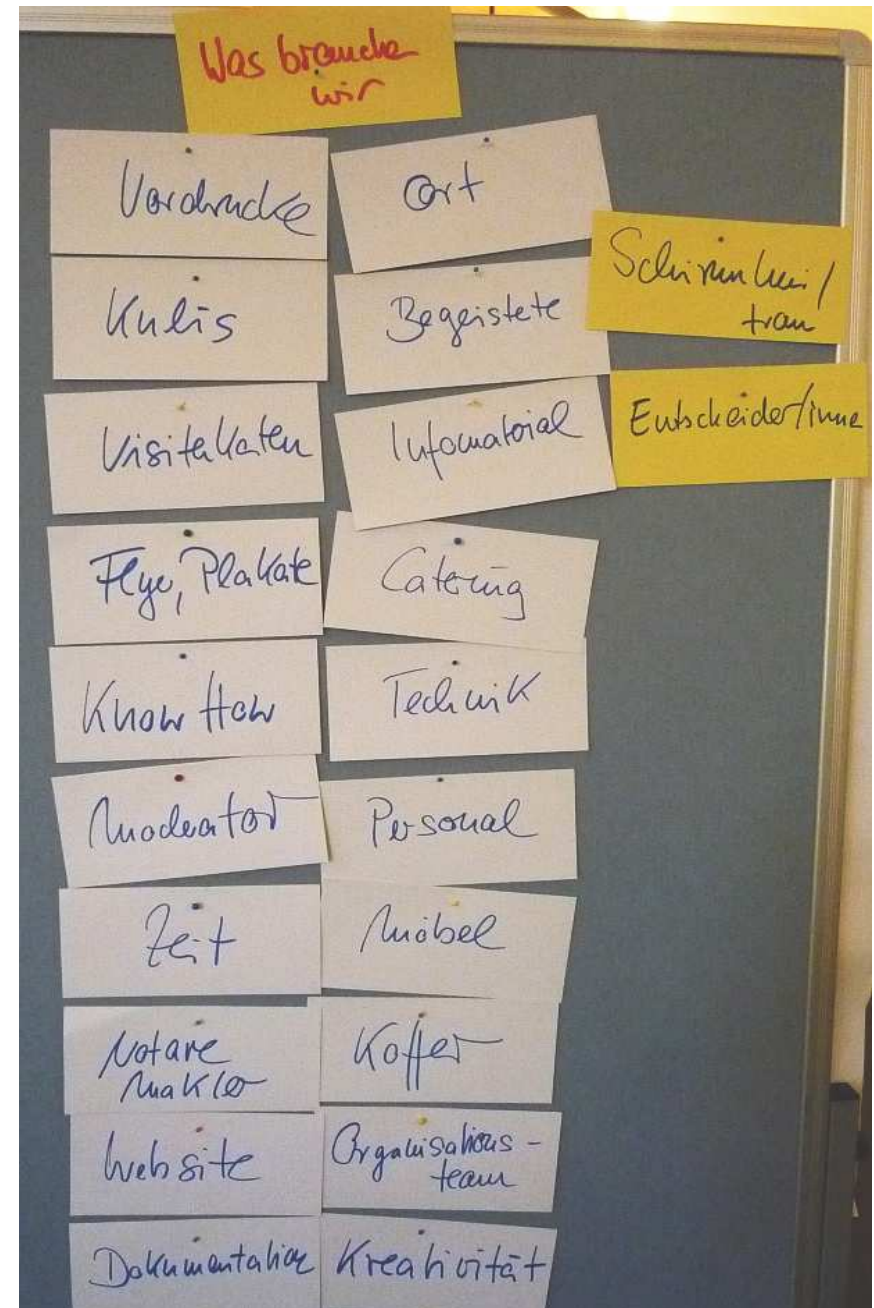 Was brauche
wir
Vordrucke
Kulis
Visitekaten
Flye, Plakate
Know How
Moderator
Zeit
Notare
Makler
Website
Dokumentation
Ort
Begeistete
Infomaterial
Catering
Technik
Personal
Möbel
Koffer
Organisations-
team
Kreativität
Schirmherr/
frau
Entscheider/inne